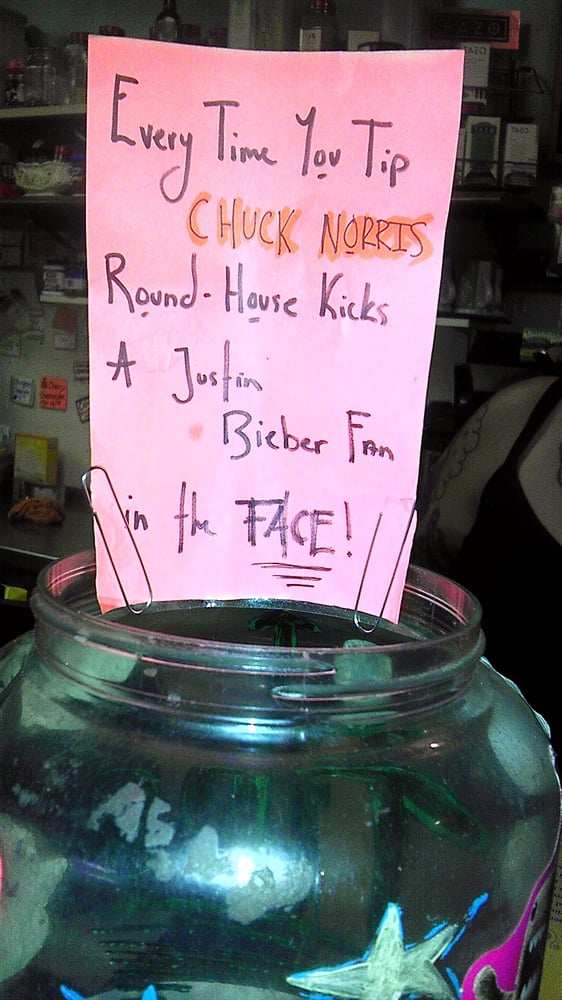 TAZO
TAZO
TAZO
Every Time You Tip
CHUCK NORRIS
Round-House Kicks
A Justin
Bieber Fan
in the FACE!